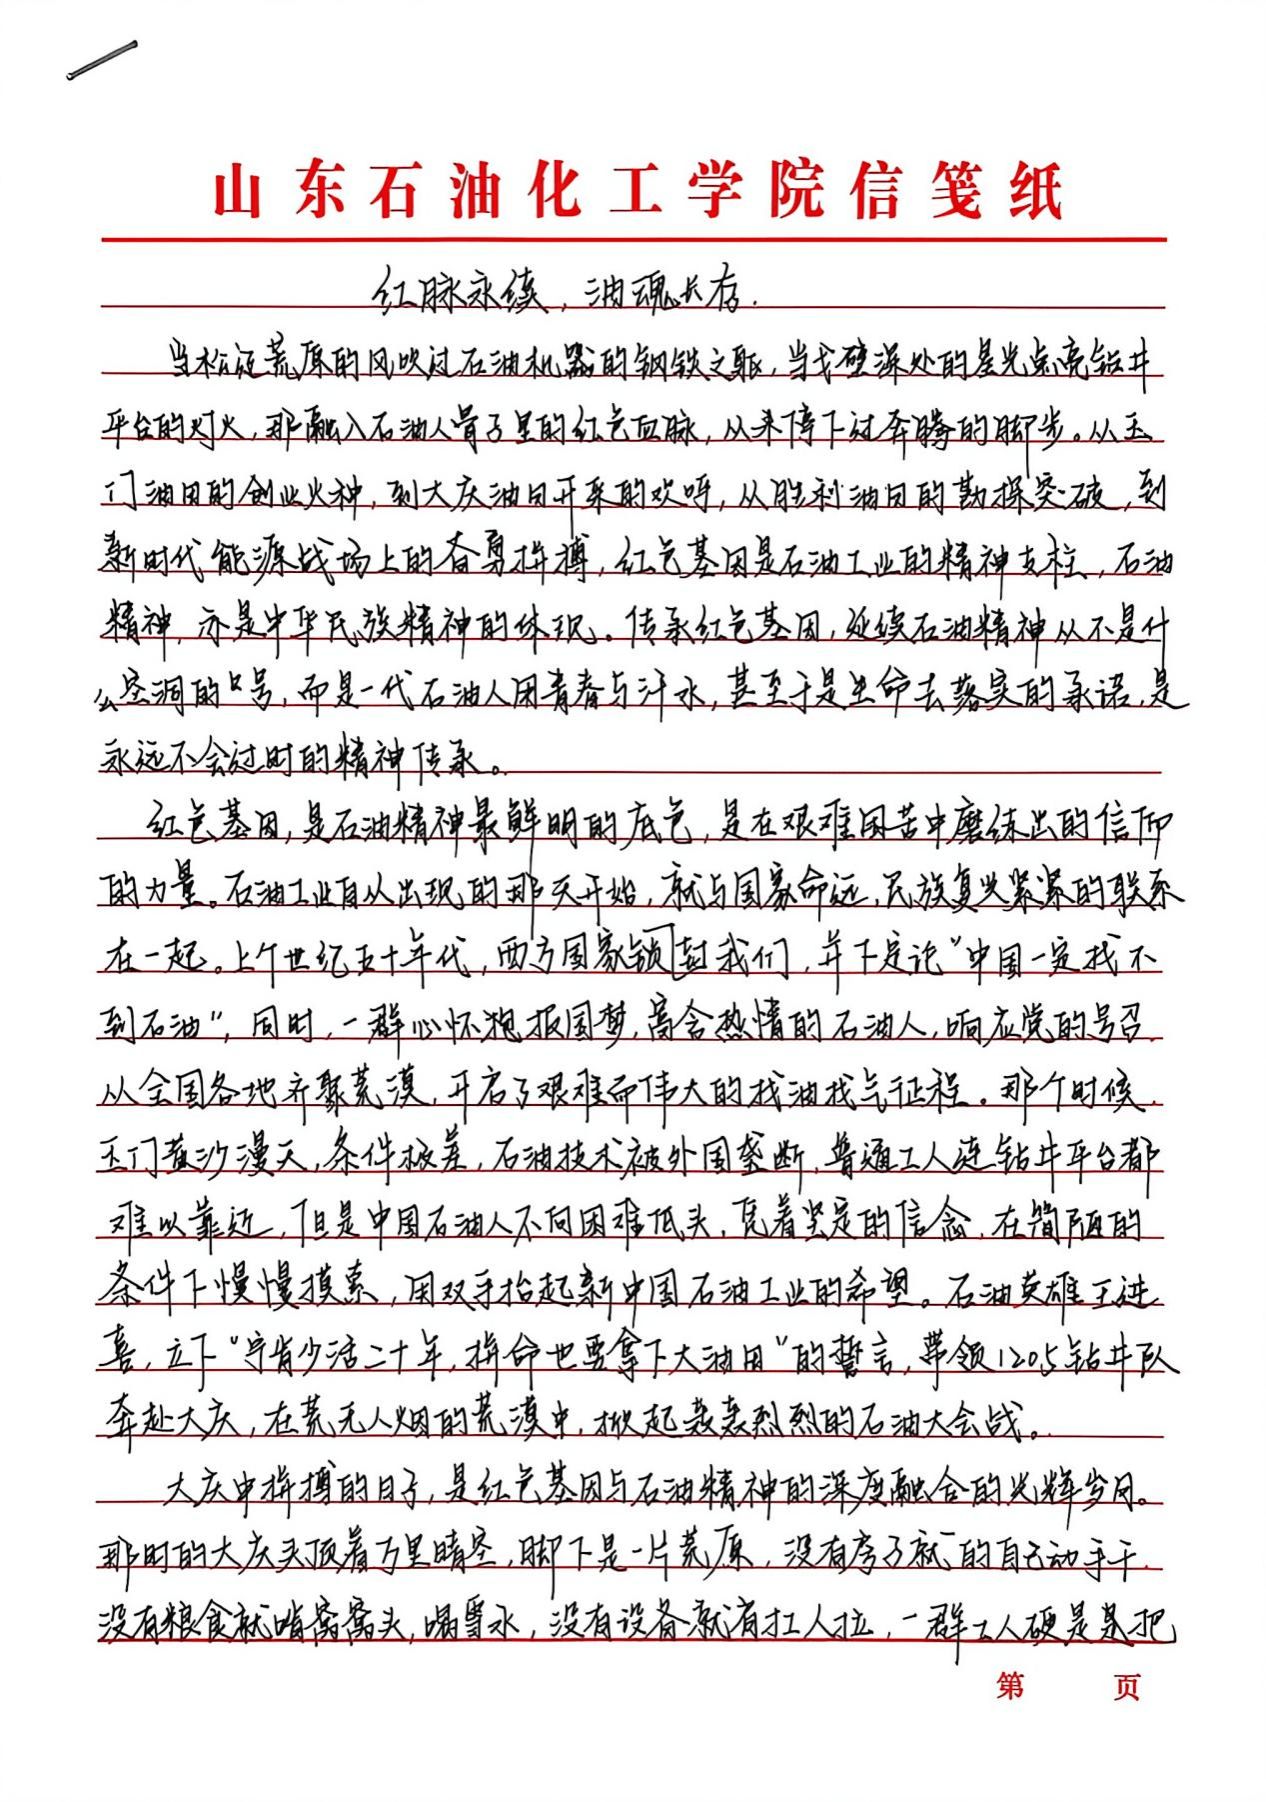 山东石油化工学院信笺纸
红脉永续，油魂长存.
当松辽荒原的风吹过石油机器的钢铁之躯，当戈壁深处的星光点亮钻井
平台的灯火，那融入石油人骨子里的红色血脉，从未停下过奔腾的脚步。从玉
门油田的创业火种，到大庆油田开采的欢呼，从胜利油田的勘探突破，到
新时代能源战场上的奋勇拼搏，红色基因是石油工业的精神支柱，石油
精神，亦是中华民族精神的体现。传承红色基因，延续石油精神从不是什
么空洞的口号，而是一代石油人用青春与汗水，甚至于是生命去落实的承诺，是
永远不会过时的精神传承。
红色基因，是石油精神最鲜明的底色，是在艰难困苦中磨练出的信仰
的力量。石油工业自从出现的那天开始，就与国家命运，民族复兴紧紧的联系
在一起。上个世纪五十年代，西方国家锁封我们，并下定论“中国一定找不
到石油”，同时，一群心怀抱报国梦，富含热情的石油人，响应党的号召，
从全国各地齐聚荒漠，开启了艰难而伟大的找油找气征程。那个时候，
玉门黄沙漫天，条件极差，石油技术被外国垄断，普通工人连钻井平台都
难以靠近，但是中国石油人不向困难低头，凭着坚定的信念，在简陋的
条件下慢慢摸索，用双手抬起新中国石油工业的希望。石油英雄王进
喜，立下“宁肯少活二十年，拼命也要拿下大油田”的誓言，带领1205钻井队
奔赴大庆，在荒无人烟的荒漠中，掀起轰轰烈烈的石油大会战。
大庆中拼搏的日子，是红色基因与石油精神的深度融合的光辉岁月。
那时的大庆头顶着万里晴空，脚下是一片荒原，没有房子就的自己动手干，
没有粮食就啃窝窝头，喝雪水，没有设备就有扛人拉，一群工人硬是是把
第 页